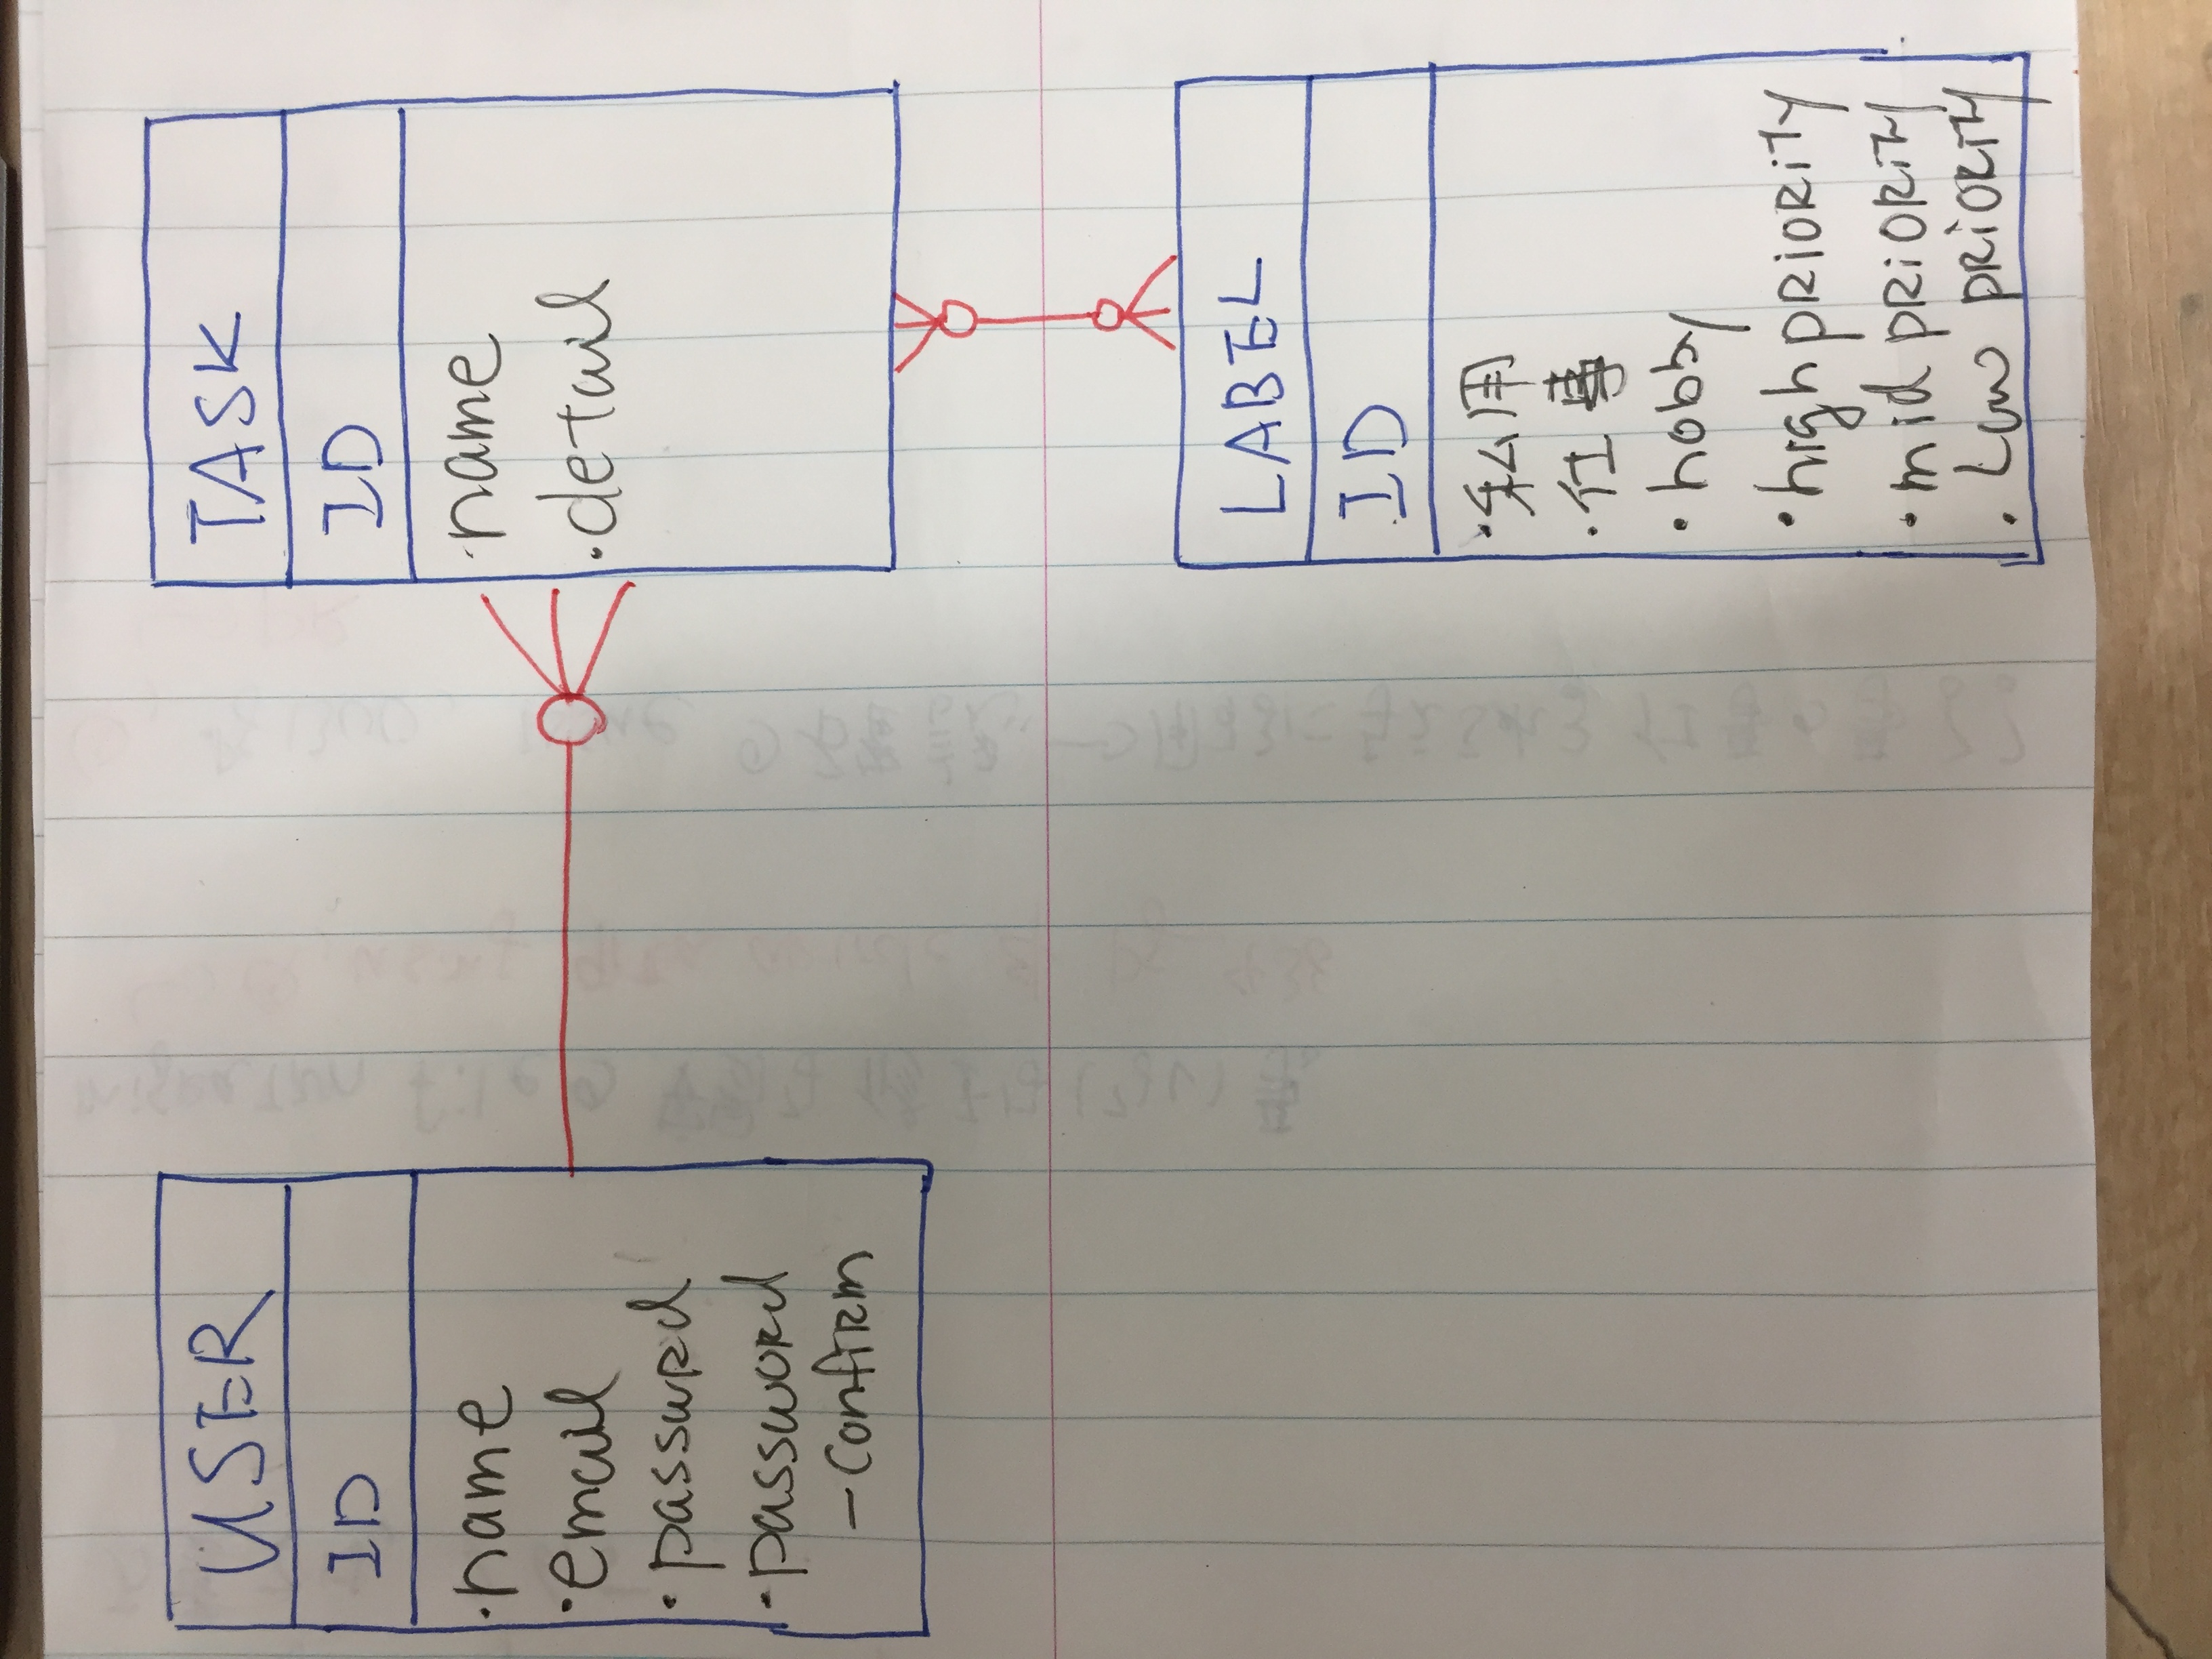 USER
ID
・name
・email
・password
・password
-confirm
TASK
ID
・name
・detail
LABEL
ID
・私用
・仕事
・hobby
・high priority
・mid priority
・Low priority